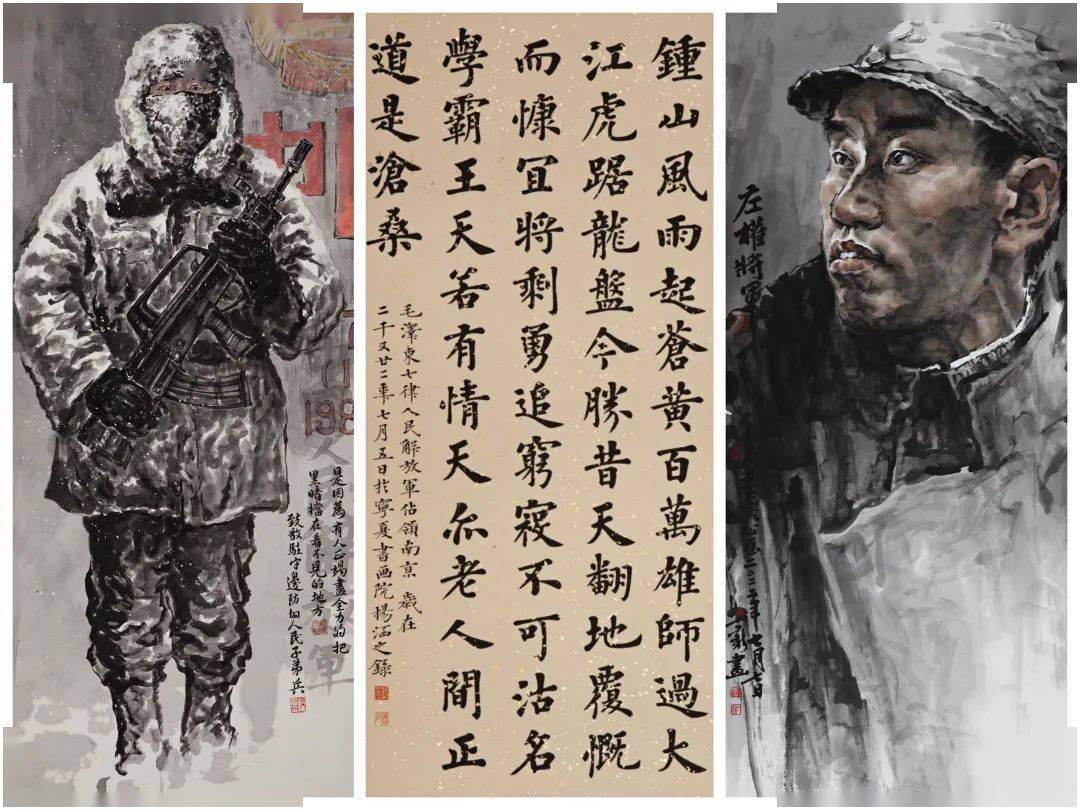 是因為有人正竭盡全力的把
黑暗擋在看不見的地方
致敬駐守邊防的人民子弟兵
中
198
人
軍
鍾山風雨起蒼黄百萬雄師過大
江虎踞龍盤今勝昔天翻地覆慨
而慷冝將剩勇追窮寇不可沽名
學霸王天若有情天亦老人間正
道是滄桑
毛澤東七律人民解放軍佔領南京 歲在
二千又廿二年七月五日於寧夏書画院楊洒之錄
左權將軍
二年七月七日
畫